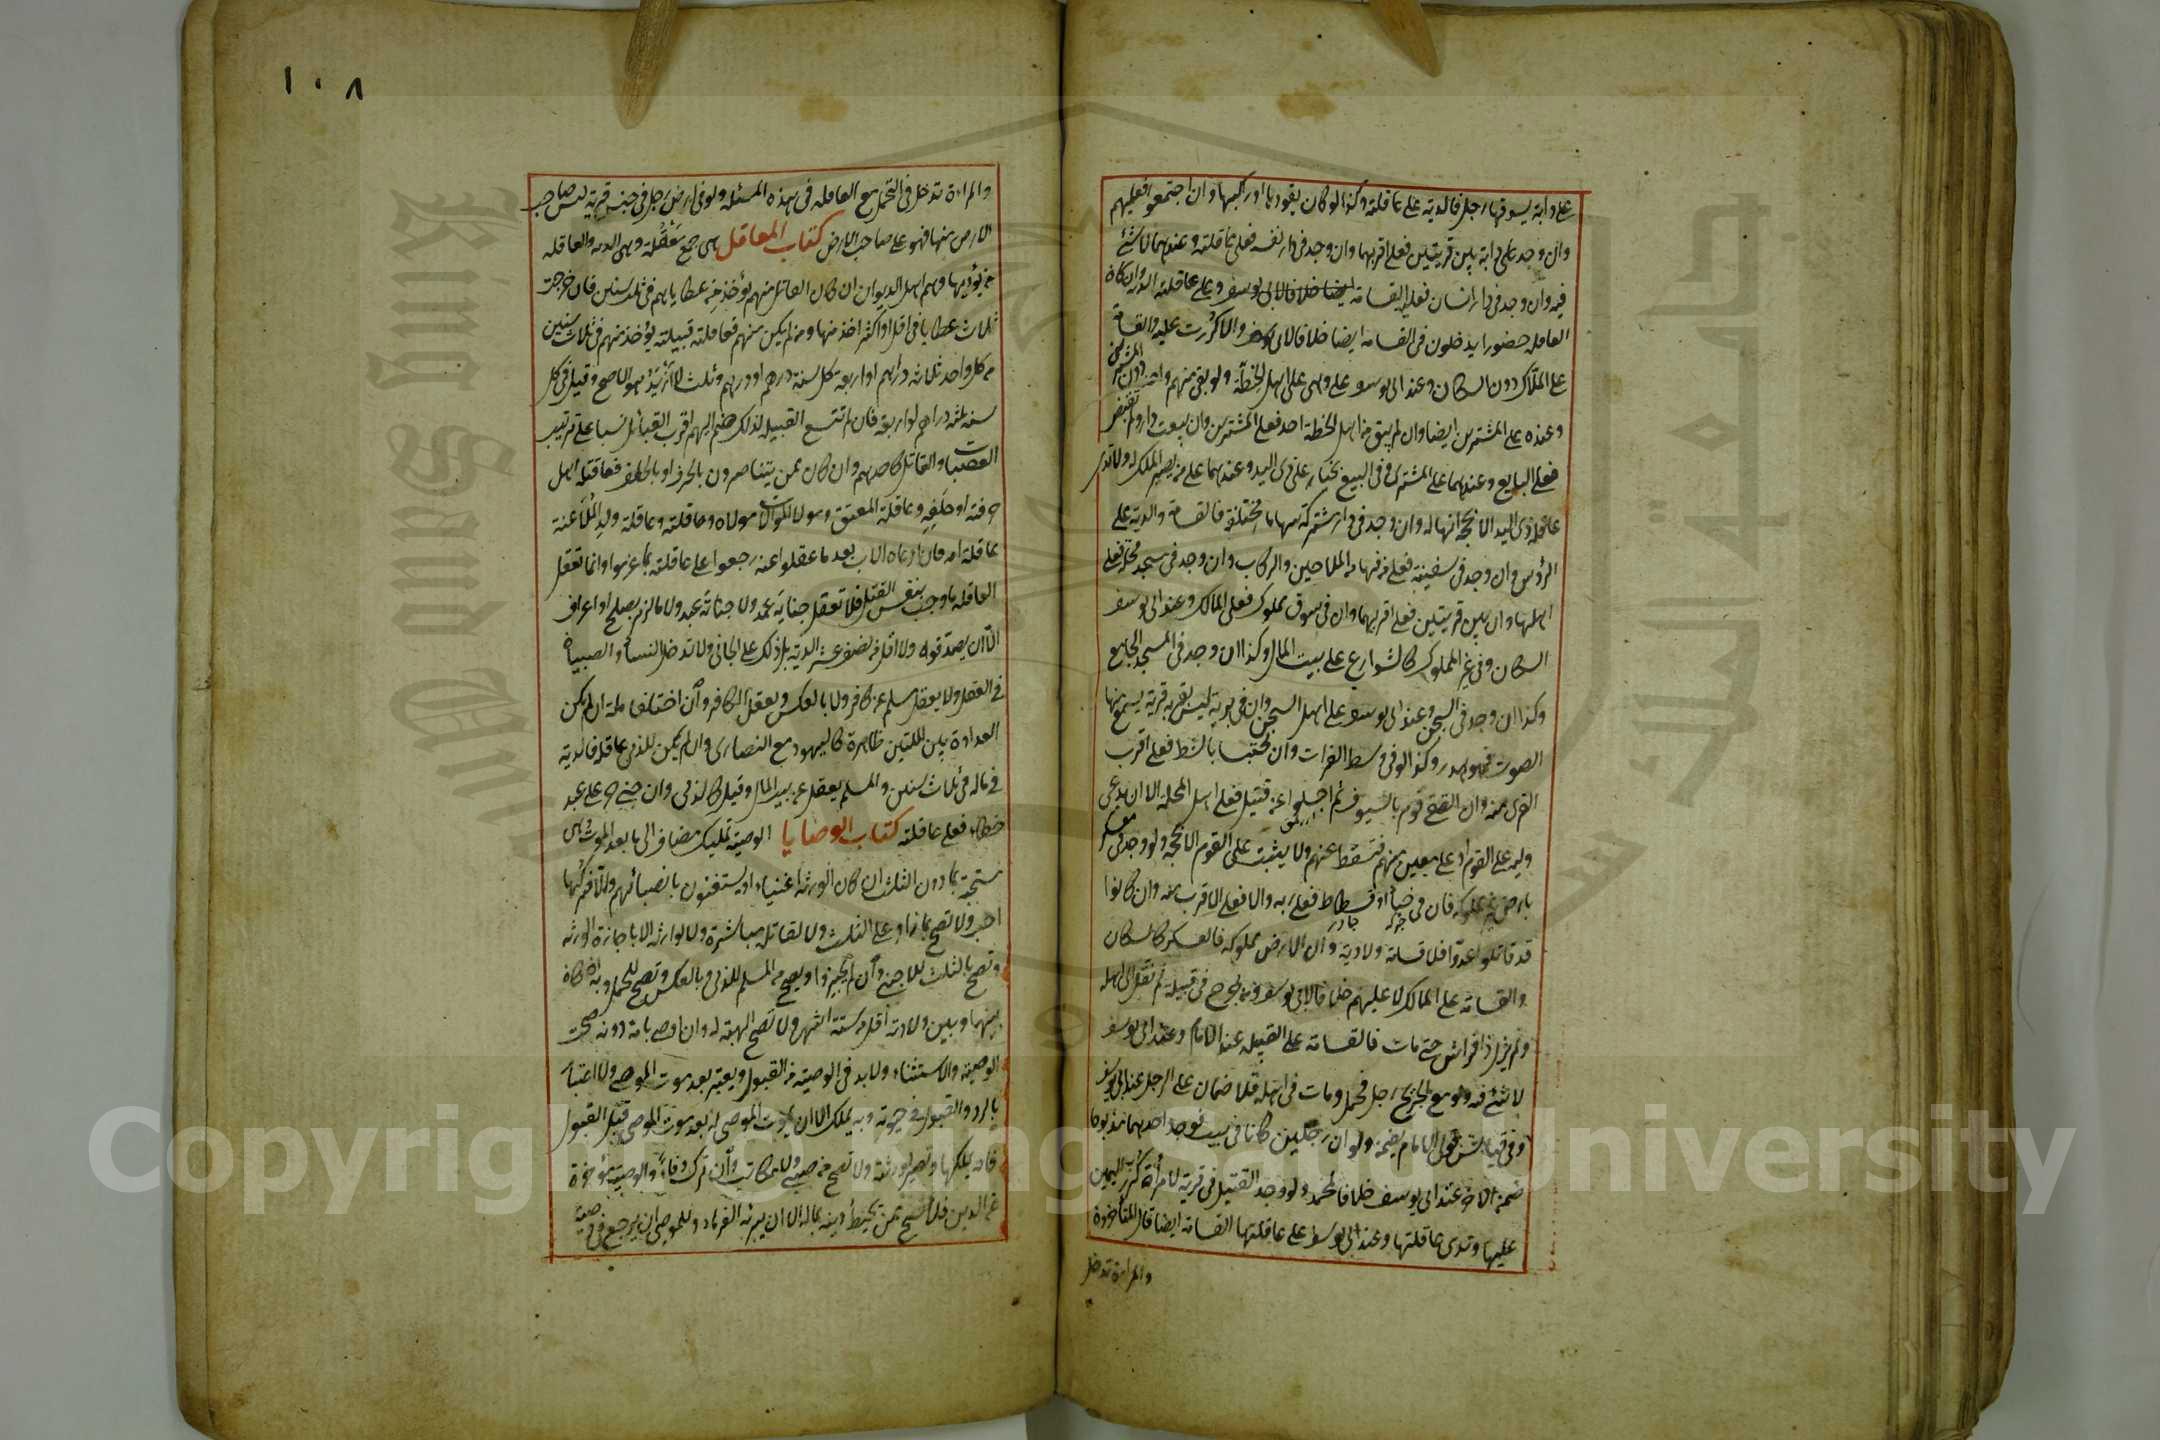 على دابة يسوقها رجل فالدية على عاقلته وكذا لو كان يقودها او راكبها وان اجتمعوا فعليهم
وان وجد على دابة بين قريتين فعلى اقربهما وان وجد في دار نفسه فعلى عاقلته وعندهما لا شئ
فيه وان وجد في دار انسان فعليه القسامة وعلى عاقلته الدية وان كان
العاقلة حضورا يدخلون في القسامة ايضا خلافا لابى يوسف والا كررت عليه والقسامة
على الملاك دون السكان وعند ابى يوسف على وهي على اهل الخطة ولو بقى منهم واحد دون المشترين
وعنده على المشترين ايضا وان لم يبق من اهل الخطة احد فعلى المشترين وان بيعت دار ولم تقبض
فعلى البايع وعندهما على المشترى وفى البيع بخيار على ذى اليد وعندهما على من يصير الملك له ولا تدى
عاقلة ذى اليد الا بحجة انها له وان وجد في دار مشتركة سهاما مختلفة فالقسامة والدية على
الرؤس وان وجد في سفينة فعلى من فيها من الملاحين والركاب وان وجد في مسجد محلة فعلى
اهلها وان بين قريتين فعلى اقربهما وان في سوق مملوك فعلى المالك وعند ابى يوسف
السكان وفي غير المملوك كالشوارع على بيت المال وكذا ان وجد في المسجد الجامع
وكذا ان وجد في السجن وعند ابى يوسف على اهل السجن وان في برية ليس بقربه قرية يسمع منها
الصوت فهو هدر وكذا لو في وسط الفرات وان محتبسا بالشط فعلى اقرب
القرى منه وان التقى قوم بالسيوف ثم اجلوا عن قتيل فعلى اهل المحلة الا ان يدعى
وليه على القوم او على معين منهم فتسقط عنهم ولا يثبت على القوم الا بحجة ولو وجد في معسكر
بارض غير مملوكة فان في خباء او فسطاط فعلى ربه والا فعلى الاقرب منه وان كانوا
قد قاتلوا عدوا فلا قسامة ولا دية وان الارض مملوكة فالعسكر كالسكان
والقسامة على المالك لا عليهم خلافا لابى يوسف ومن جرح في قبيلة ثم نقل الى اهله
ولم يزل ذا فراش حتى مات فالقسامة على القبيلة عند الامام وعند ابى يوسف
لا شئ فيه ولو مع الجريح رجل فحمله ومات في اهله فلا ضمان على الرجل عند ابى يوسف
وفى قياس قول الامام يضمن ولو ان رجلين كانا في بيت فوجد احدهما مذبوحا
ضمن الاخر عند ابى يوسف خلافا لمحمد ولو وجد القتيل في قرية لامرأة كرر اليمين
عليها وتدى عاقلتها وعند ابى يوسف على عاقلتها القسامة ايضا قال المتأخرون
والمرأة تدخل
١٠٨
والمراءة تدخل في التحمل مع العاقلة في هذه المسئلة ولو في ارض رجل في جنب قرية ليس صاحب
الارض منها فهو على صاحب الارض كتاب المعاقل هى جمع معقلة وهى الدية والعاقلة
من يؤديها وهم اهل الديوان ان كان القاتل منهم تؤخذ من عطاياهم في ثلث سنين فان خرجت
ثلاث عطايا في اقل او اكثر اخذ منها ومن لم يكن منهم فعاقلته قبيلته يؤخذ منهم في ثلاث سنين
من كل واحد ثلاثة دراهم او اربعة كل سنة درهم او درهم وثلث لا ازيد هو الاصح وقيل في كل
سنة ثلثة دراهم او اربعة فان لم تتسع القبيلة لذلك ضم اليهم اقرب القبائل نسبا على ترتيب
العصبات والقاتل كاحدهم وان كان ممن يتناصرون بالحرف او بالحلف فعاقلته اهل
حرفته او حلفه وعاقلة المعتق ومولى الموالاة مولاه وعاقلته وعاقلة ولد الملاعنة
عاقلة امه فان ادعاه الاب بعد ما عقلوا عنه رجعوا على عاقلته بما غرموا وانما تعقل
العاقلة ما وجب بنفس القتل فلا تعقل جناية عمد ولا جناية عبد ولا ما لزم بصلح او اعتراف
الا ان يصدقوه ولا اقل من نصف عشر الدية بل ذلك على الجاني ولا تدخل النساء والصبيان
في العقل ولا يعقل مسلم عن كافر ولا بالعكس ويعقل الكافر وان اختلفا ملة ان لم يكن
العداوة بين الملتين ظاهرة كاليهود مع النصارى وان لم يكن للذمى عاقلة فالدية
في ماله في ثلاث سنين والمسلم يعقل عنه بيت المال وقيل كالذمى وان جنى حر على عبد
خطاء فعلى عاقلته كتاب الوصايا الوصية تمليك مضاف الى ما بعد الموت وهى
مستحبة بما دون الثلث ان كان الورثة اغنياء او يستغنون بانصبائهم والا فتركها
احب ولا تصح بما زاد على الثلث ولا لقاتله مباشرة ولا لوارثه الا باجازة الورثة
وتصح بالثلث للاجنبى وان لم يجيزوا ويصح من المسلم للذمى وبالعكس وتصح للحمل وبه ان كان
بينهما وبين ولادته اقل من ستة اشهر ولا تصح الهبة له وان اوصى بامة دونه صحت
الوصية والاستثناء ولا بد في الوصية من القبول ويعتبر بعد موت الموصى ولا اعتبار
بالرد والقبول في حيوته وبه يملك الا ان يموت الموصى له بعد موت الموصى قبل القبول
فانه يملكها وتصير لورثته ولا تصح من صبى ولا مكاتب وان ترك وفاء والوصية مؤخرة
عن الدين فلا تصح ممن يحيط دينه بماله الا ان يبرئه الغرماء وللموصى ان يرجع في وصيته
Copyright © King Saud University